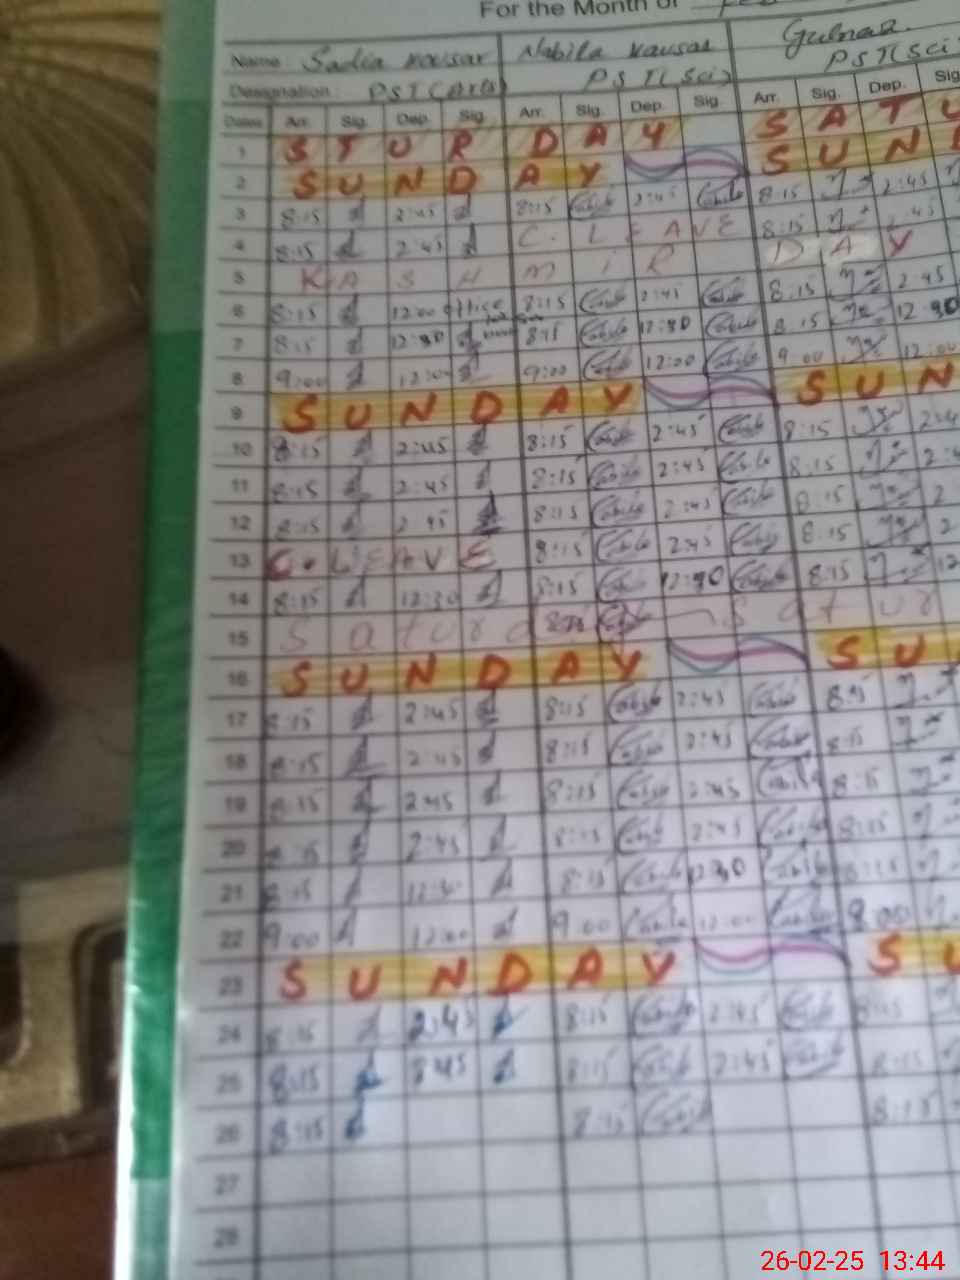 For the Month of
Name: Sadia Kousar Nabila Kausar Gulnaz
Designation: PST(Arts) PST(Sci) PST(Sci)
Dates Arr. Sig. Dep. Sig. Arr. Sig. Dep. Sig. Arr. Sig. Dep. Sig
1 STURDAY SATU
2 SUNDAY SUN
3 8:15 2:45 8:15 2:45 8:15 2:45
4 8:15 2:45 C. LEAVE 8:15 2:45
5 KASHMIR DAY
6 8:15 12:00 office 8:15 2:45 8:15 2:45
7 8:15 12:30 8:15 12:30 8:15 12:30
8 9:00 12:00 9:00 12:00 9:00 12:00
9 SUNDAY SUN
10 8:15 2:45 8:15 2:45 8:15 2:4
11 8:15 2:45 8:15 2:45 8:15 2:4
12 8:15 2:45 8:15 2:45 8:15 2
13 C. LEAVE 8:15 2:45 8:15 2
14 8:15 12:30 8:15 12:30 8:15 12
15 Saturd Satur
16 SUNDAY SU
17 8:15 2:45 8:15 2:45 8:15
18 8:15 2:45 8:15 2:45 8:15
19 8:15 2:45 8:15 2:45 8:15
20 8:15 2:45 8:15 2:45 8:15
21 8:15 12:30 8:15 12:30 8:15
22 9:00 12:00 9:00 12:00 9:00
23 SUNDAY SU
24 8:15 2:45 8:15 2:45 8:15
25 8:15 45 8:15 2:45 8:15
26 8:15 8:15 8:15
27
28
26-02-25 13:44